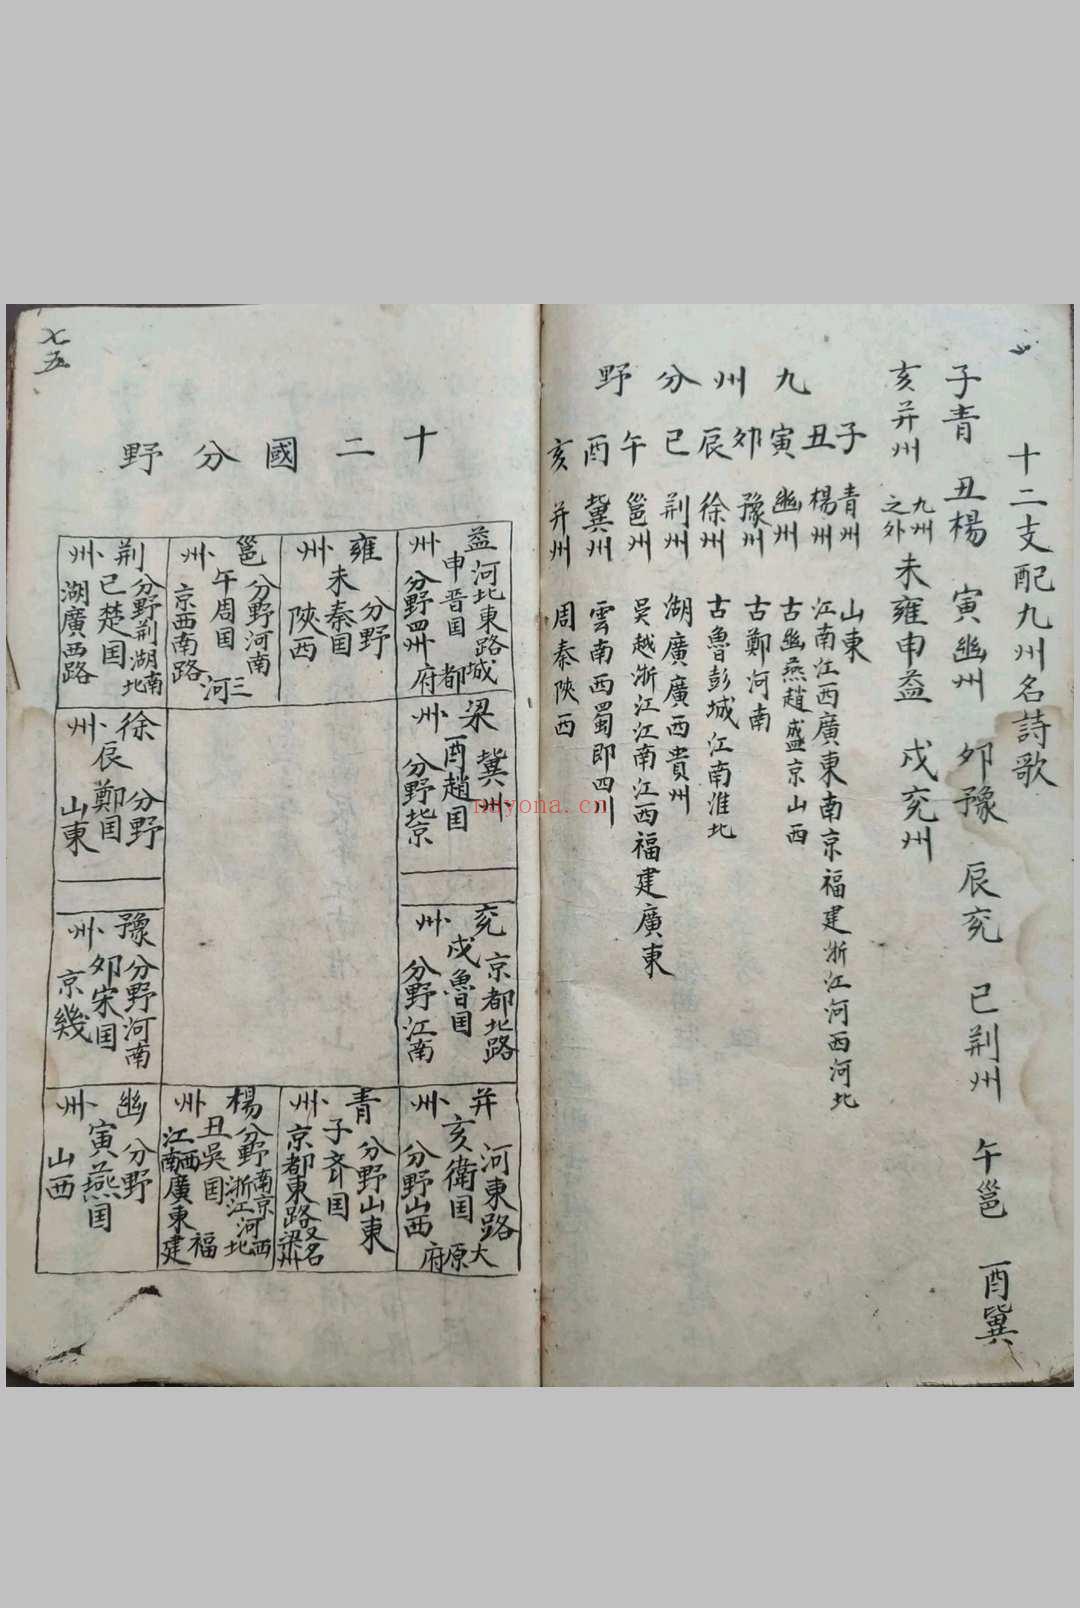 十二支配九州名詩歌
子青 丑楊 寅幽州 卯豫 辰兖 巳荆州 午邕 酉冀
亥并州 九州之外 未雍申益 戍兖州
九州分野
子 青州 山東
丑 楊州 江南江西廣東南京福建浙江河西河北
寅 幽州 古幽燕趙盛京山西
卯 豫州 古鄭河南
辰 徐州 古魯彭城江南淮北
巳 荆州 湖廣廣西貴州
午 邕州 吴越浙江江南江西福建廣東
酉 冀州 雲南西蜀即四川
亥 并州 周秦陝西
七五
十二國分野
益州 河北東路城都府 申晋国 分野四州
雍州 分野 未秦国 陝西
邕州 分野河南三河 午周国 京西南路
荆州 分野荆湖南北 巳楚国 湖廣西路
梁州 冀州 酉趙国 分野北京
徐州 分野 辰鄭国 山東
兖州 京都北路 戍魯国 分野江南
豫州 分野河南 卯宋国 京幾
并州 河東路大原府 亥衛国 分野山西
青州 分野山東 子斉国 京都東路又名梁州
楊州 分野南京浙江河西北 丑吳国 江南西廣東福建
幽州 分野 寅燕国 山西
nayona.cn